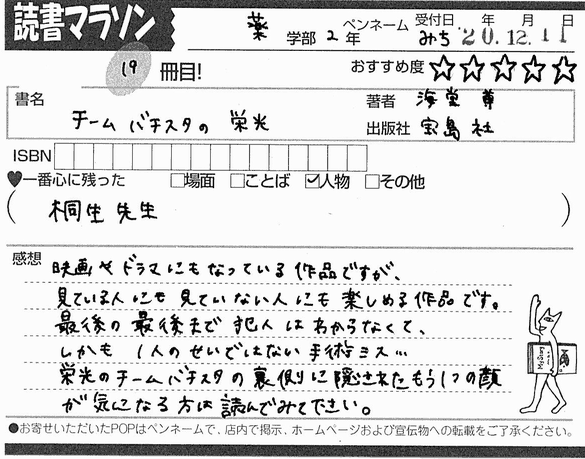 読書マラソン
薬 学部 2 年 ペンネーム みち 受付日 20.年12.月11日
19 冊目! おすすめ度 ☆☆☆☆☆
書名 チーム バチスタの 栄光
著者 海堂 尊
出版社 宝島 社
ISBN
♥一番心に残った □場面 □ことば ☑人物 □その他
( 桐生 先生 )
感想
映画やドラマにもなっている作品ですが、
見ている人にも見ていない人にも楽しめる作品です。
最後の最後まで犯人はわからなくて、
しかも 1人のせいではない手術ミス…
栄光のチームバチスタの裏側に隠されたもう1つの顔
が気になる方は読んでみて下さい。
●お寄せいただいたPOPはペンネームで、店内で掲示、ホームページおよび宣伝物への転載をご了承ください。